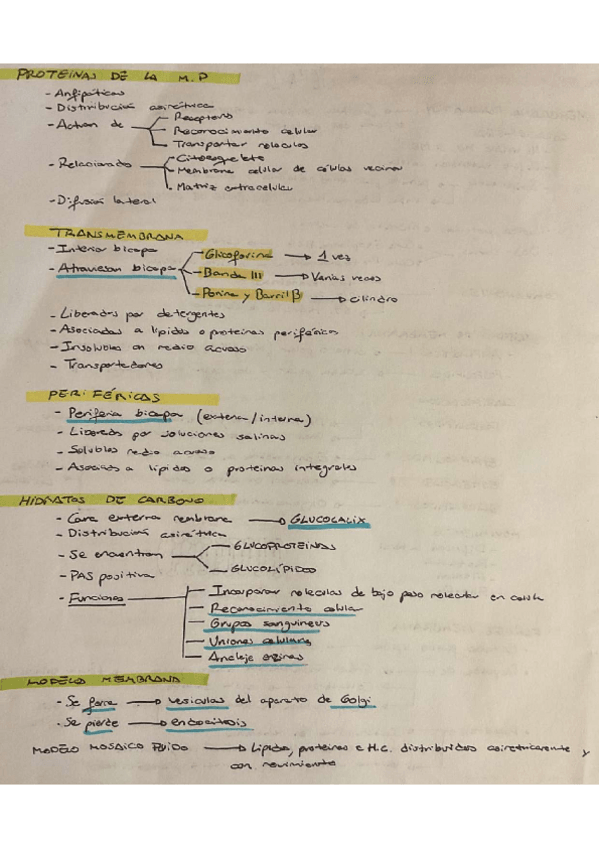 PROTEINAS DE LA M.P
- Anfipáticas
- Distribución asimétrica
- Actúan de
Receptores
Reconocimiento celular
Transportar moléculas
- Relacionado
Citoesqueleto
Membrana celular de células vecinas
Matriz extracelular
- Difusión lateral
TRANSMEMBRANA
- Interior bicapa
- Atraviesan bicapa
Glicoforina → 1 vez
Banda III → Varias veces
Porina y Barril β → cilindro
- Liberadas por detergentes
- Asociadas a lípidos o proteínas periféricas
- Insolubles en medio acuoso
- Transportadores
PERIFÉRICAS
- Periferia bicapa (externa/interna)
- Liberadas por soluciones salinas
- Solubles medio acuoso
- Asociadas a lípidos o proteinas integrales
HIDRATOS DE CARBONO
- Cara externa membrana → GLUCOCALIX
- Distribución asimétrica
- Se encuentran
GLUCOPROTEINAS
GLUCOLÍPIDOS
- PAS positiva
- Funciones
Incorporar moleculas de bajo peso molecular en celula
Reconocimiento celular
Grupos sanguineos
Uniones celulares
Anclaje enzimas
MODELO MEMBRANA
- Se forma → vesiculas del aparato de Golgi
- Se pierde → endocitosis
MODELO MOSAICO FLUIDO → Lípidos, proteínas e H.C. distribuidos asimetricamente y
con movimiento